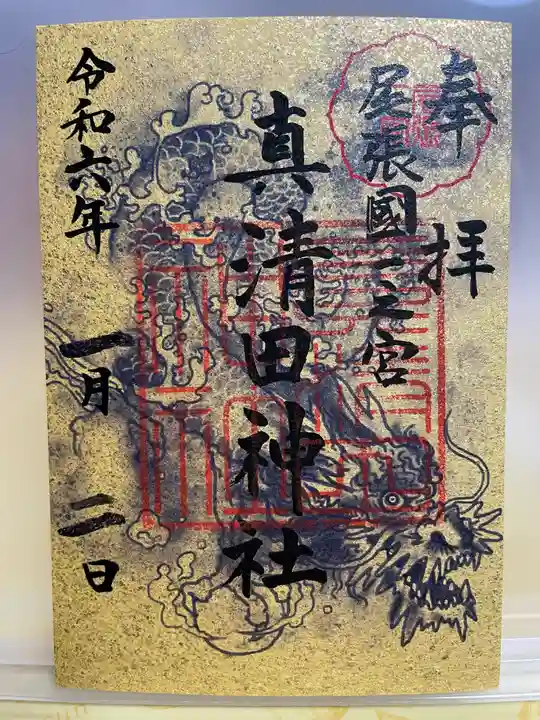 奉拝
尾張國一之宮
真清田神社
令和六年一月二日